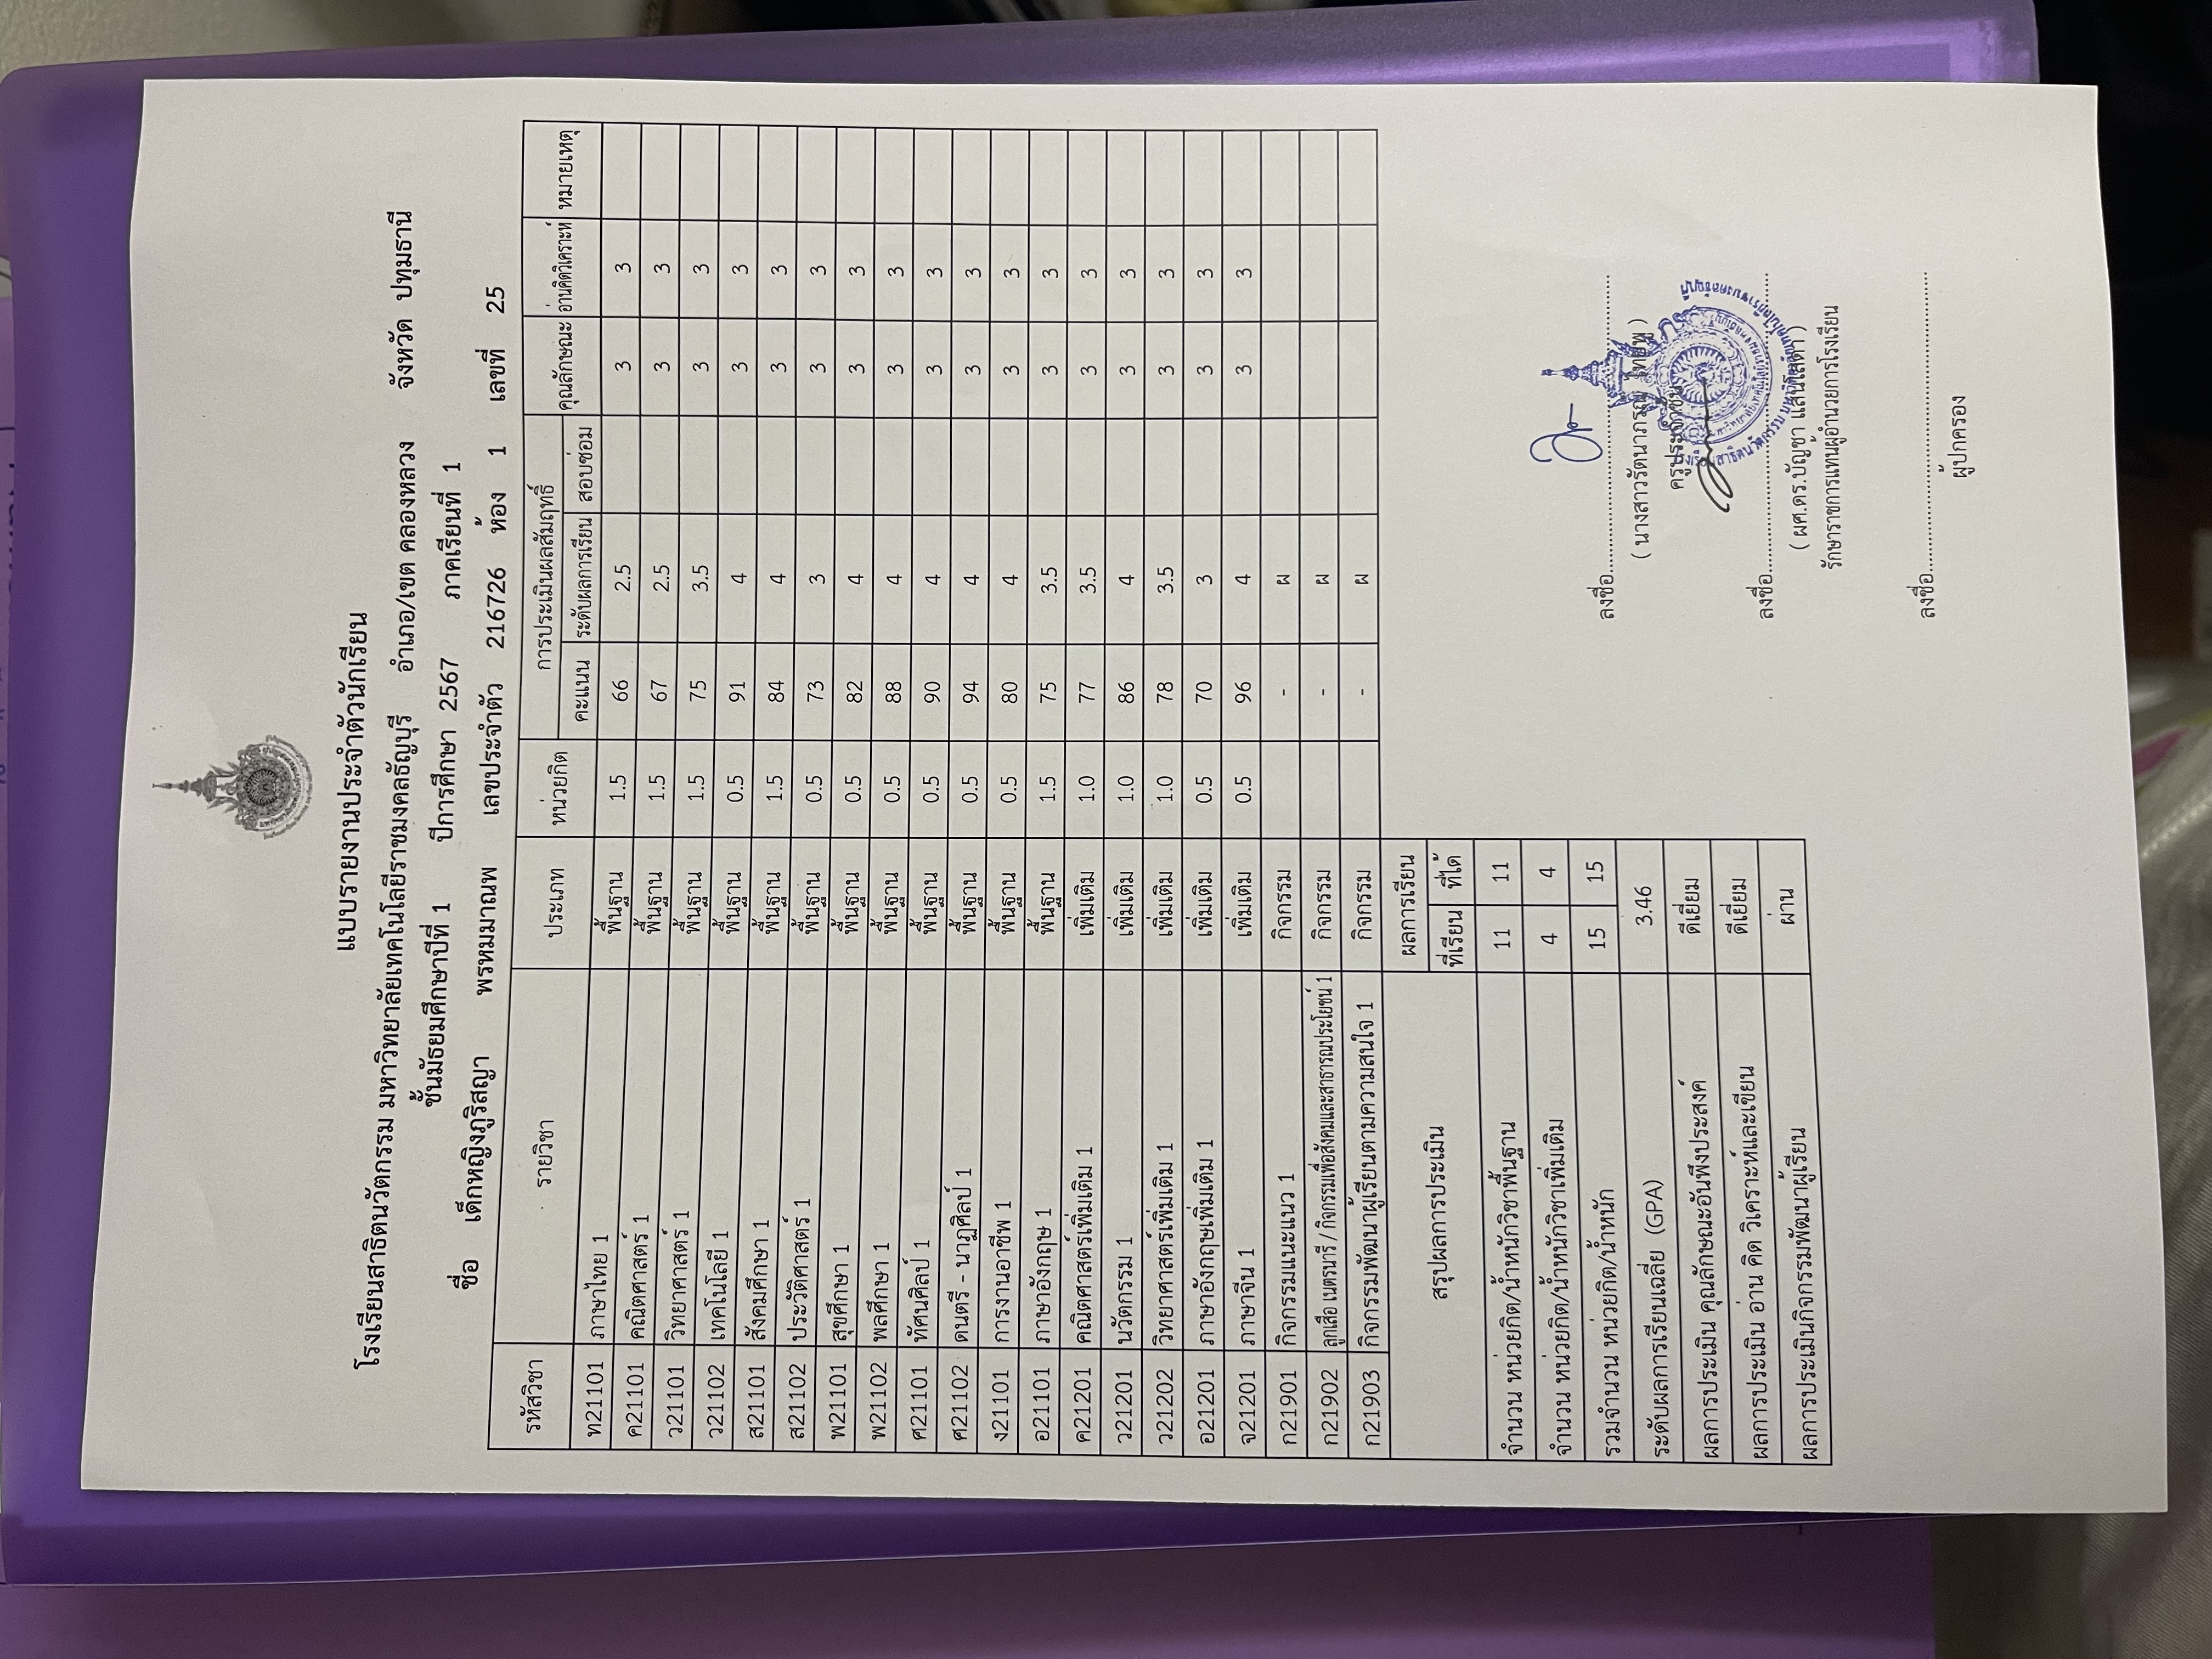 แบบรายงานประจำตัวนักเรียน
โรงเรียนสาธิตนวัตกรรม มหาวิทยาลัยเทคโนโลยีราชมงคลธัญบุรี อำเภอ/เขต คลองหลวง จังหวัด ปทุมธานี
ชั้นมัธยมศึกษาปีที่ 1 ปีการศึกษา 2567 ภาคเรียนที่ 1
ชื่อ เด็กหญิงภูริสญา พรหมมาณพ เลขประจำตัว 216726 ห้อง 1 เลขที่ 25
รหัสวิชา รายวิชา ประเภท หน่วยกิต การประเมินผลสัมฤทธิ์ คุณลักษณะ อ่านคิดวิเคราะห์ หมายเหตุ
คะแนน ระดับผลการเรียน สอบซ่อม
ท21101 ภาษาไทย 1 พื้นฐาน 1.5 66 2.5 3 3
ค21101 คณิตศาสตร์ 1 พื้นฐาน 1.5 67 2.5 3 3
ว21101 วิทยาศาสตร์ 1 พื้นฐาน 1.5 75 3.5 3 3
ว21102 เทคโนโลยี 1 พื้นฐาน 0.5 91 4 3 3
ส21101 สังคมศึกษา 1 พื้นฐาน 1.5 84 4 3 3
ส21102 ประวัติศาสตร์ 1 พื้นฐาน 0.5 73 3 3 3
พ21101 สุขศึกษา 1 พื้นฐาน 0.5 82 4 3 3
พ21102 พลศึกษา 1 พื้นฐาน 0.5 88 4 3 3
ศ21101 ทัศนศิลป์ 1 พื้นฐาน 0.5 90 4 3 3
ศ21102 ดนตรี - นาฏศิลป์ 1 พื้นฐาน 0.5 94 4 3 3
ง21101 การงานอาชีพ 1 พื้นฐาน 0.5 80 4 3 3
อ21101 ภาษาอังกฤษ 1 พื้นฐาน 1.5 75 3.5 3 3
ค21201 คณิตศาสตร์เพิ่มเติม 1 เพิ่มเติม 1.0 77 3.5 3 3
ว21201 นวัตกรรม 1 เพิ่มเติม 1.0 86 4 3 3
ว21202 วิทยาศาสตร์เพิ่มเติม 1 เพิ่มเติม 1.0 78 3.5 3 3
อ21201 ภาษาอังกฤษเพิ่มเติม 1 เพิ่มเติม 0.5 70 3 3 3
จ21201 ภาษาจีน 1 เพิ่มเติม 0.5 96 4 3 3
ก21901 กิจกรรมแนะแนว 1 กิจกรรม - ผ
ก21902 ลูกเสือ เนตรนารี / กิจกรรมเพื่อสังคมและสาธารณประโยชน์ 1 กิจกรรม - ผ
ก21903 กิจกรรมพัฒนาผู้เรียนตามความสนใจ 1 กิจกรรม - ผ
สรุปผลการประเมิน ผลการเรียน
ที่เรียน ที่ได้
จำนวน หน่วยกิต/น้ำหนักวิชาพื้นฐาน 11 11
จำนวน หน่วยกิต/น้ำหนักวิชาเพิ่มเติม 4 4
รวมจำนวน หน่วยกิต/น้ำหนัก 15 15
ระดับผลการเรียนเฉลี่ย (GPA) 3.46
ผลการประเมิน คุณลักษณะอันพึงประสงค์ ดีเยี่ยม
ผลการประเมิน อ่าน คิด วิเคราะห์และเขียน ดีเยี่ยม
ผลการประเมินกิจกรรมพัฒนาผู้เรียน ผ่าน
ลงชื่อ
( นางสาวรัตนาภรณ์ ไทยพู )
ครูประจำชั้น
ลงชื่อ
( ผศ.ดร.บัญชา แสนโสดา )
รักษาราชการแทนผู้อำนวยการโรงเรียน
ลงชื่อ
ผู้ปกครอง